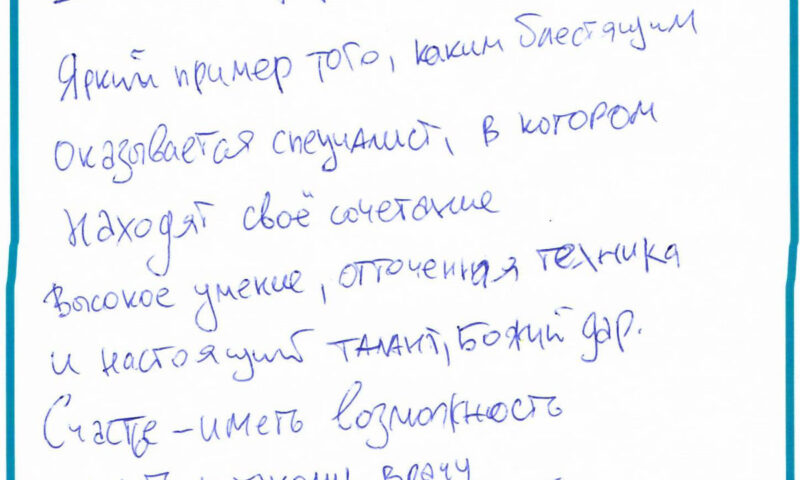 Яркий пример того, каким блестящим
оказывается специалист, в котором
находят своё сочетание
высокое умение, отточенная техника
и настоящий талант, Божий дар.
Счастье – иметь возможность
врачу